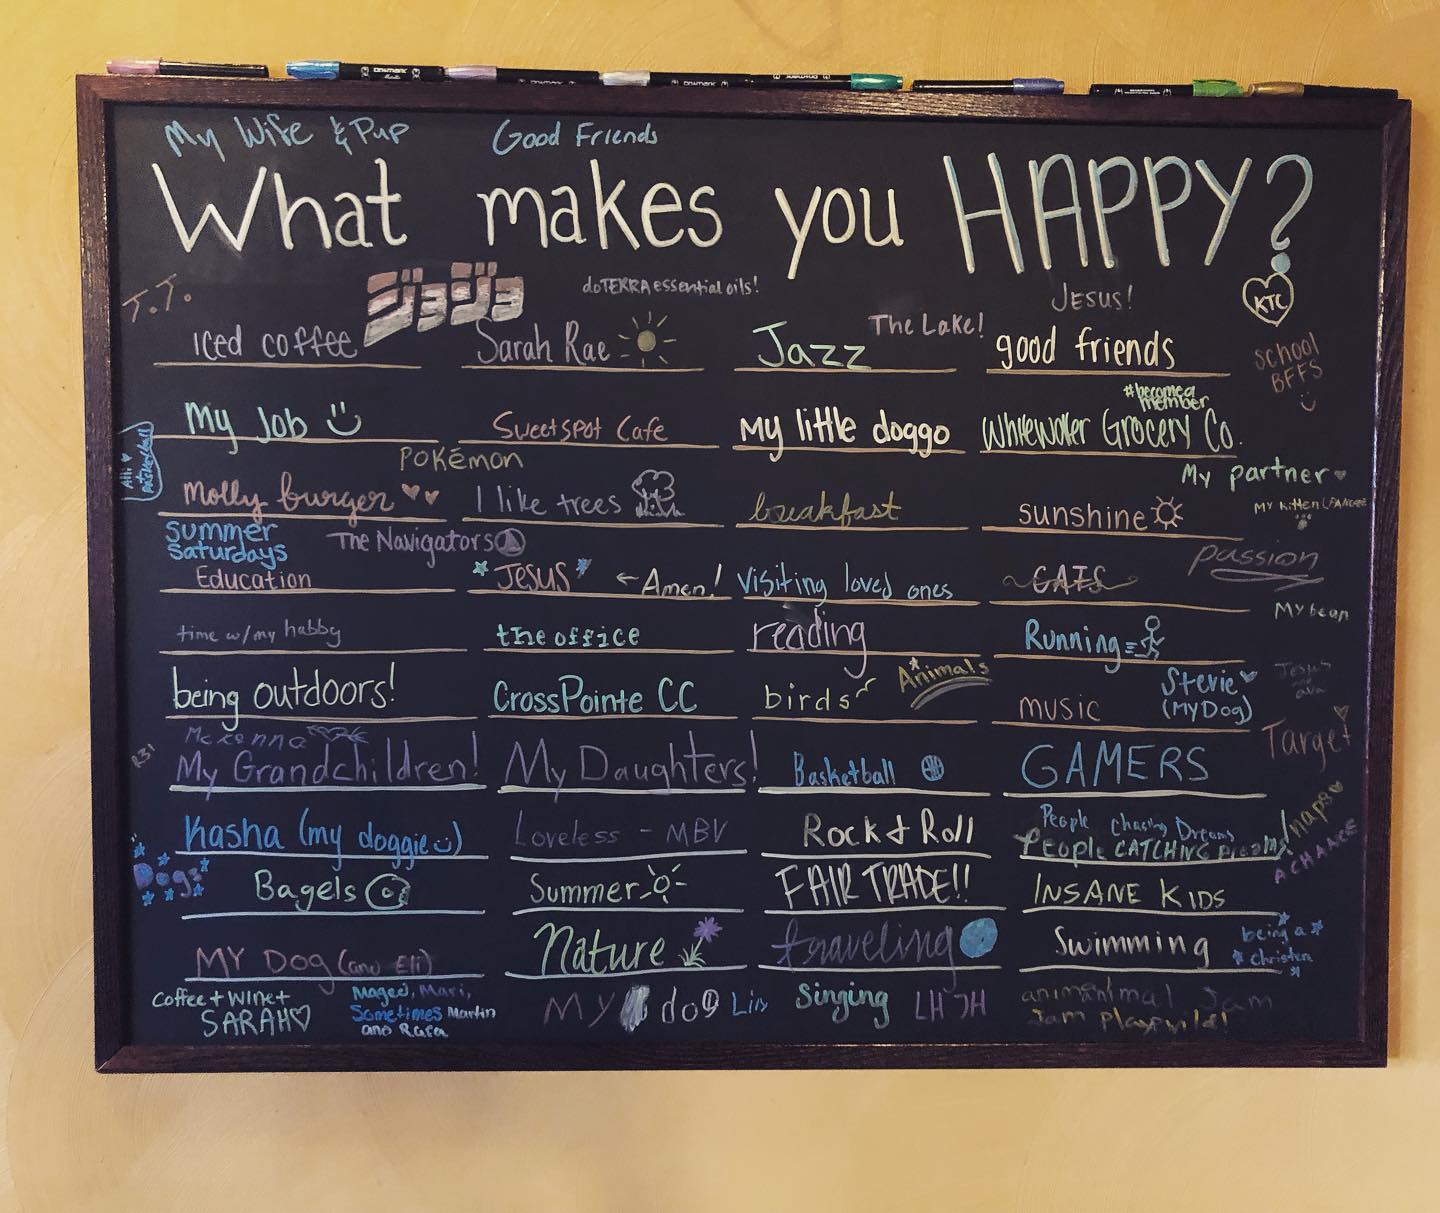 My Wife & Pup
Good Friends
What makes you HAPPY?
T.T.
ジョジョ
doTERRA essential oils!
JESUS!
KTC
iced coffee
Sarah Rae
Jazz
The Lake!
good friends
SCHOOL
BFFS
My Job
Sweetspot Cafe
My little doggo
#becomea
member
Whitewater Grocery Co.
Alli
POKÉMON
My partner
Molly burger
I like trees
breakfast
sunshine
My kitten
summer
saturdays
The Navigators
passion
Education
JESUS
←Amen!
Visiting loved ones
CATS
My bean
time w/my habby
the office
reading
Running
being outdoors!
CrossPointe CC
birds
Animals
music
Stevie
(MyDog)
Jesus
ava
Target
Mckenna
R31
My Grandchildren!
My Daughters!
Basketball
GAMERS
naps
Kasha (my doggie)
Loveless - MBV
Rock & Roll
People Chasing Dreams
People CATCHING Dreams!
A CHANCE
Dogs
Bagels
Summer
FAIR TRADE!!
INSANE KIDS
MY DOG (and Eli)
Nature
traveling
Swimming
being a
christen
Coffee + Wine +
SARAH
Maged, Mari,
Sometimes Martin
and Rafa
MY dog Lily
Singing
LH JH
Jam
Jam